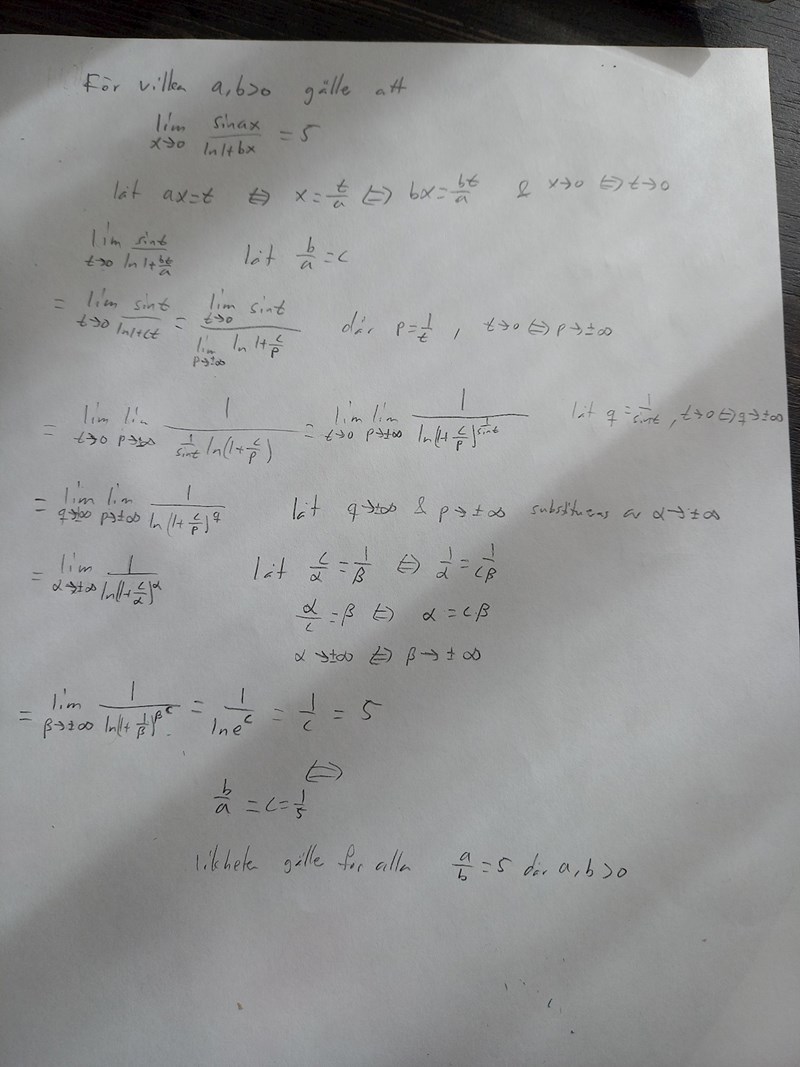 För vilka a,b>0 gälle att
lim x→0 sinax / ln1+bx = 5
låt ax=t ⇔ x=t/a ⇔ bx=bt/a & x→0 ⇔ t→0
lim t→0 sint / ln 1+bt/a låt b/a = c
= lim t→0 sint / ln1+ct = lim t→0 sint / lim p→±∞ ln 1+c/p där p=1/t , t→0 ⇔ p→±∞
= lim t→0 lim p→±∞ 1 / (1/sint ln(1+c/p)) = lim t→0 lim p→±∞ 1 / ln(1+c/p)^(1/sint) låt q=1/sint, t→0 ⇔ q→±∞
= lim q→±∞ lim p→±∞ 1 / ln(1+c/p)^q låt q→±∞ & p→±∞ substitueras av α→±∞
= lim α→±∞ 1 / ln(1+c/α)^α låt c/α = 1/β ⇔ 1/α = 1/cβ
α/c = β ⇔ α = cβ
α→±∞ ⇔ β→±∞
= lim β→±∞ 1 / ln(1+1/β)^βc = 1 / lne^c = 1/c = 5
⇔
b/a = c = 1/5
likheten gälle för alla a/b = 5 där a,b>0